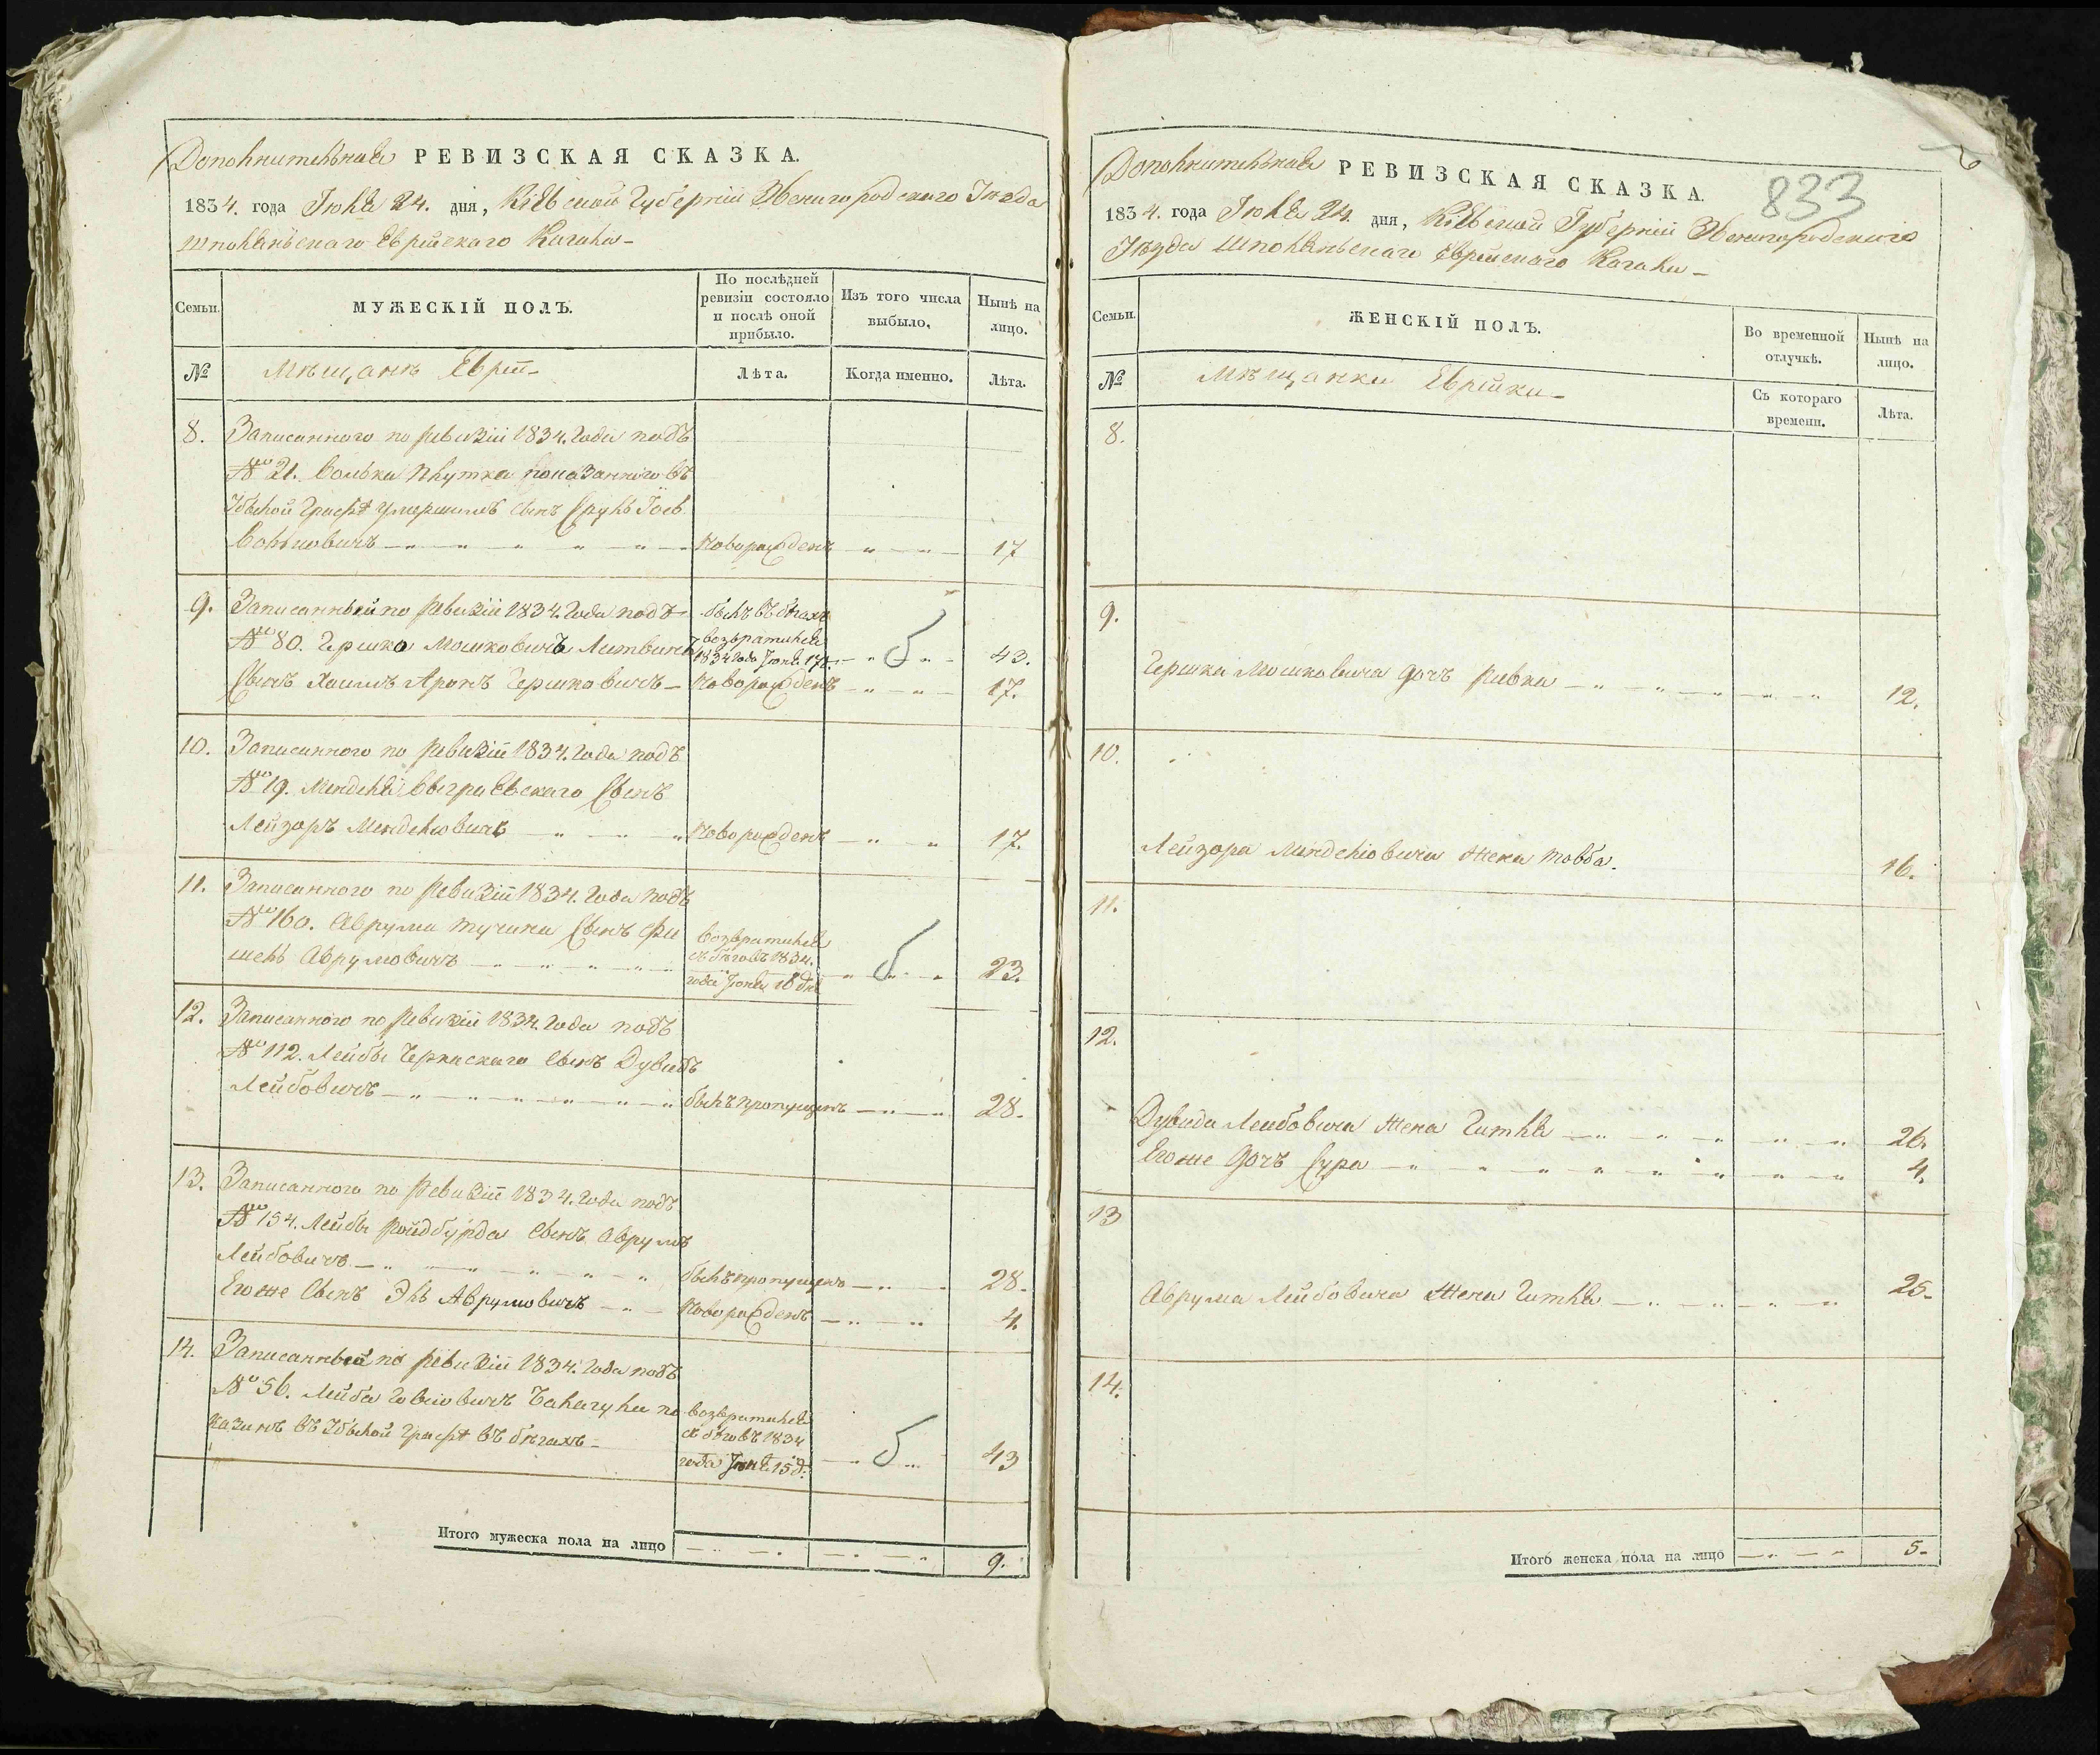 Дополнительная РЕВИЗСКАЯ СКАЗКА.
1834. года Июля 24. дня, Кіевской Губерніи Звенигородского Уезда
Шполянского Еврейского Кагала
Семьи.
МУЖЕСКІЙ ПОЛЪ.
По послѣдней ревизіи состояло и послѣ оной прибыло.
Изъ того числа выбыло.
Нынѣ на лицо.
№
Мѣщанъ Еврей
Лѣта.
Когда именно.
Лѣта.
8. Записанного по ревизіи 1834. года подъ
№ 21. Волька Плутка показанного въ
умершимъ сынъ Сруль
Волковичъ новорожденъ 17
9. Записанный по ревизіи 1834. года подъ былъ въ бѣгахъ
№ 80. Гершко Мошковичъ Литвинъ возвратился 1834 года Июня 17 б 43.
Сынъ Хаимъ Аронъ Гершковичъ новорожденъ 17.
10. Записанного по ревизіи 1834. года подъ
№ 19. Менделя сынъ
Лейзоръ Менделіовичъ новорожденъ 17.
11. Записанного по ревизіи 1834. года подъ
№ 160. Аврума Тучина сынъ Фи
шель Аврумовичъ возвратился съ бѣговъ 1834. года 18 дня б 23.
12. Записанного по ревизіи 1834. года подъ
№ 112. Лейбы Черкаского сынъ Дувидъ
Лейбовичъ былъ пропущенъ 28.
13. Записанного по ревизіи 1834. года подъ
№ 154. Лейбы Ройдбурда сынъ Аврумъ
Лейбовичъ былъ пропущенъ 28.
Его же сынъ Эль Аврумовичъ новорожденъ 4.
14. Записанный по ревизіи 1834. года подъ
№ 56. Лейба Балагула по возвратился
казанъ въ графѣ въ бѣгахъ съ бѣговъ 1834 года 15 д. б 43
Итого мужеска пола на лицо 9.
Дополнительная РЕВИЗСКАЯ СКАЗКА.
833
1834. года Июля 24. дня, Кіевской Губерніи Звенигородского
Уезда Шполянского Еврейского Кагала
Семьи.
ЖЕНСКІЙ ПОЛЪ.
Во временной отлучкѣ.
Нынѣ на лицо.
№
Мѣщанки Еврейки
Съ котораго времени.
Лѣта.
8.
9.
Гершка Мошковича дочь Ривка 12.
10.
Лейзора Менделіовича жена Товба. 16.
11.
12.
Дувида Лейбовича жена Гитля 26.
Его же дочь Сура 4.
13
Аврума Лейбовича жена Гитля 25.
14.
Итого женска пола на лицо 5.